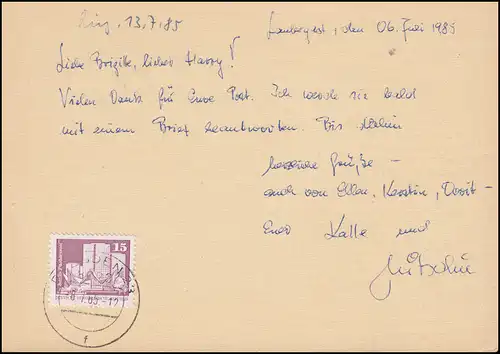 Eing. 13.7.85
den 06. Juli 1985
Liebe Brigitte, lieber Harry!
Vielen Dank für Eure Post. Ich werde sie bald
mit einem Brief beantworten. Bis dahin
herzliche Grüße –
auch von Ellen, Kerstin, Dorit –
Euer Kalle und
15
f